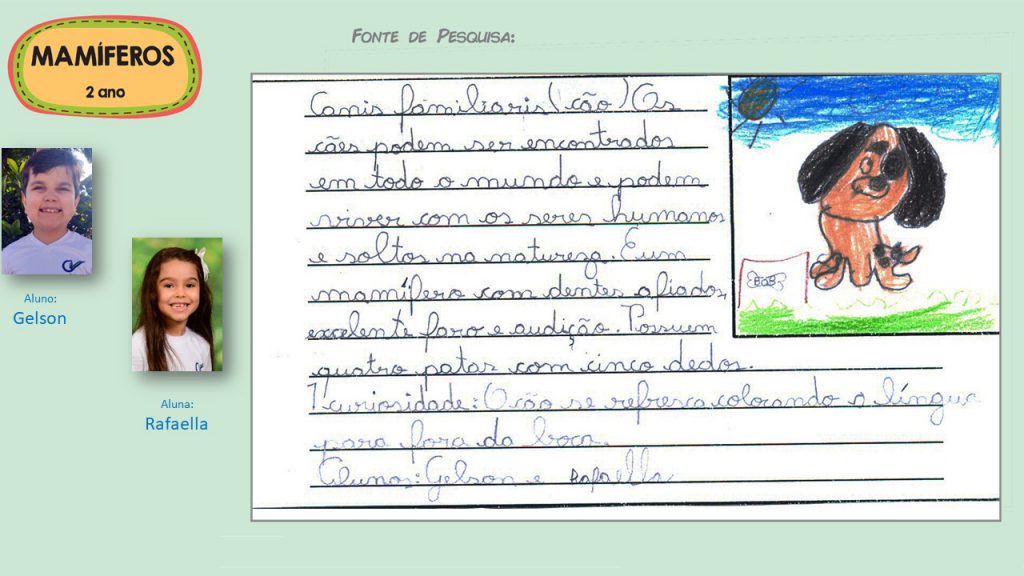 MAMÍFEROS
2 ano
FONTE DE PESQUISA:
Canis familiaris (cão) Os
cães podem ser encontrados
em todo o mundo e podem
viver com os seres humanos
e soltos na natureza. É um
mamífero com dentes afiados,
excelente faro e audição. Possuem
quatro patas com cinco dedos.
1 curiosidade: O cão se refresca colocando a língua
para fora da boca.
Alunos: Gelson e Rafaella
Aluno:
Gelson
Aluna:
Rafaella